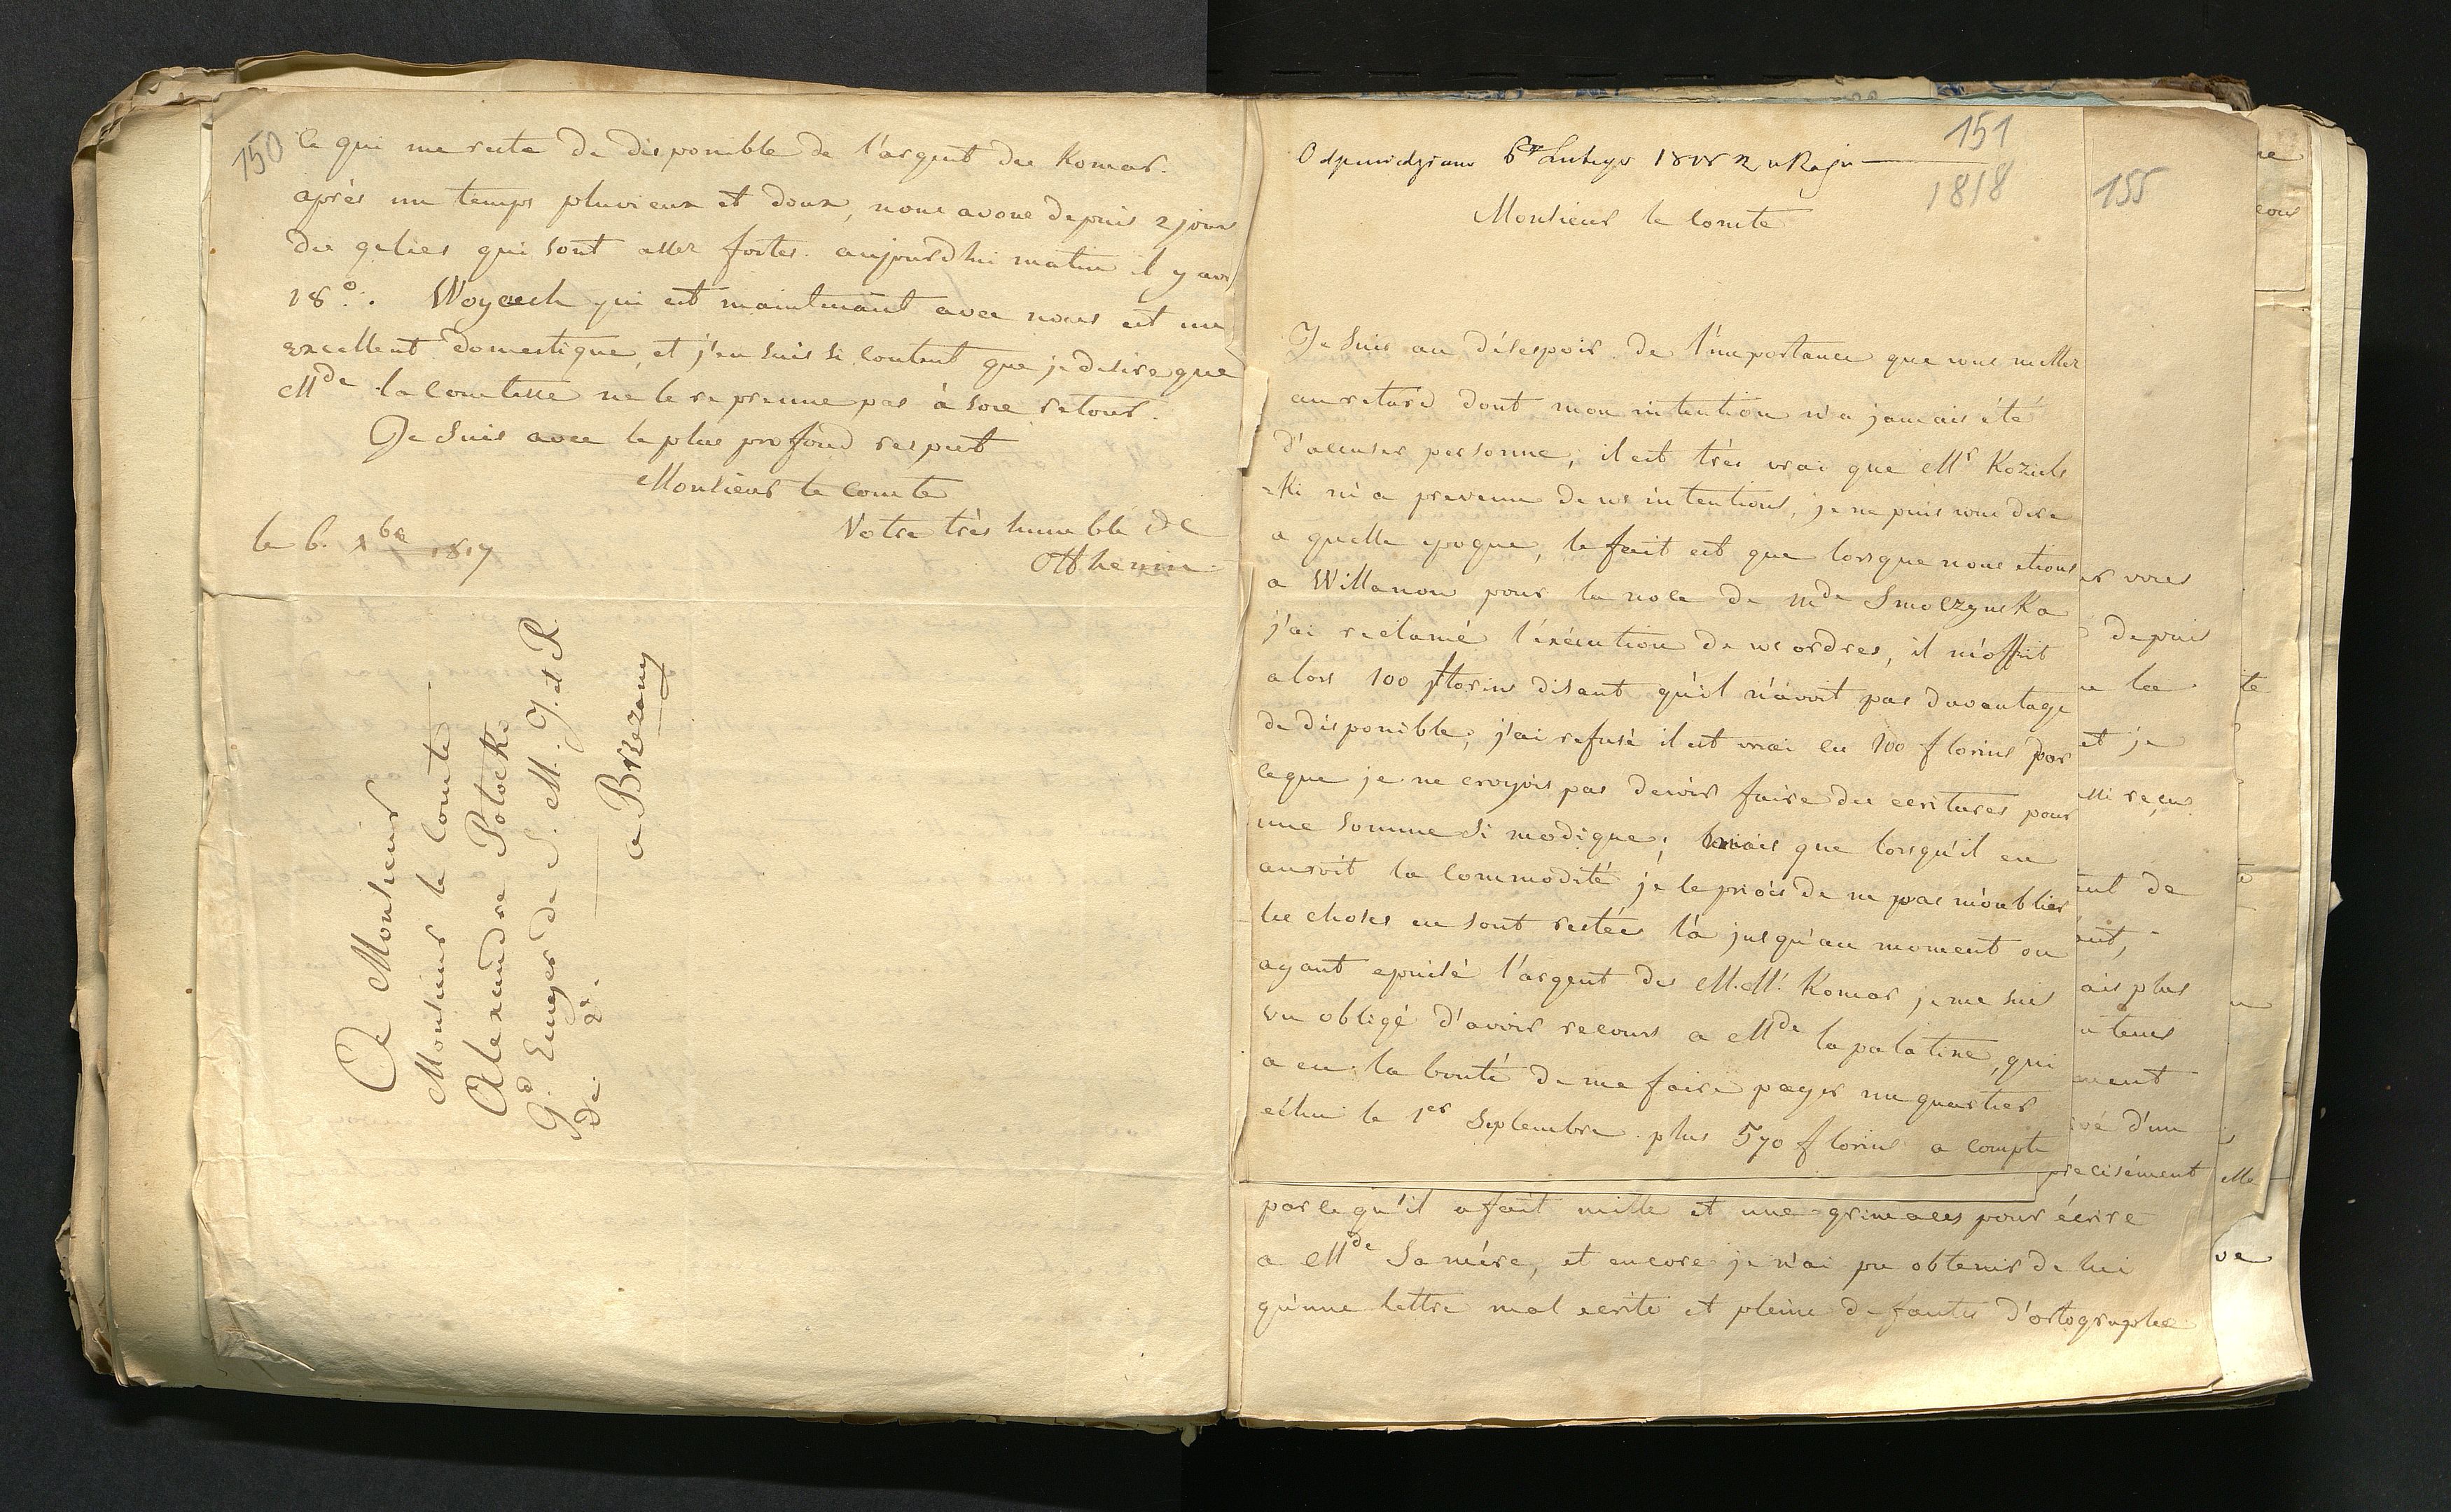 150
ce qui me reste de disponible de l'argent des Komar.
après un temps pluvieux et doux, nous avons depuis 2 jours
des gelées qui sont assez fortes. aujourdhui matin il y avoit
18°. Woyciech qui est maintenant avec nous est un
excellent domestique, et j'en suis si content que je desire que
Mde la comtesse ne le reprenne pas à son retour.
Je suis avec le plus profond respect
Monsieur le comte
Votre très humble &c
le 6. xbre 1817
Otthenin
A Monsieur
Monsieur le Comte
Alexandre Potocki
Gd. Ecuyer de S. M. J. et R.
&c. &c.
a Brzezany
151
Odpowiedziano 6go Lutego 1818 z
1818
Monsieur le comte
Je suis au désespoir de l'importance que vous mettez
au retard dont mon intention n'a jamais été
d'accuser personne; il est très vrai que Mr Koziels
=ki m'a prevenu de vos intentions, je ne puis vous dire
a quelle epoque, le fait est que lorsque nous etions
a Willanow pour la noce de mde Smolzynska
j'ai reclamé l'éxécution de vos ordres, il m'offrit
alors 100 florins disant qu'il n'avoit pas davantage
de disponible; j'ai refusé il est vrai ces 100 florins par
ceque je ne croyois pas devoir faire des ecritures pour
une somme si modique; mais que lorsqu'il en
auroit la commodité je le priois de ne pas m'oublier
les choses en sont restées là jusqu'au moment ou
ayant epuisé l'argent des M.M. Komar je me suis
vu obligé d'avoir recours a Mde la palatine, qui
a eu la bonté de me faire payer un quartier
échu le 1er Septembre plus 570 florins a compte
155
vous
depuis
les
et je
reçu
de
plus
d'un
precisément
parcequ'il a fait mille et une grimaces pour écrire
a Mde Sa mère, et encore je n'ai pu obtenir de lui
qu'une lettre mal ecrite et pleine de fautes d'ortographe